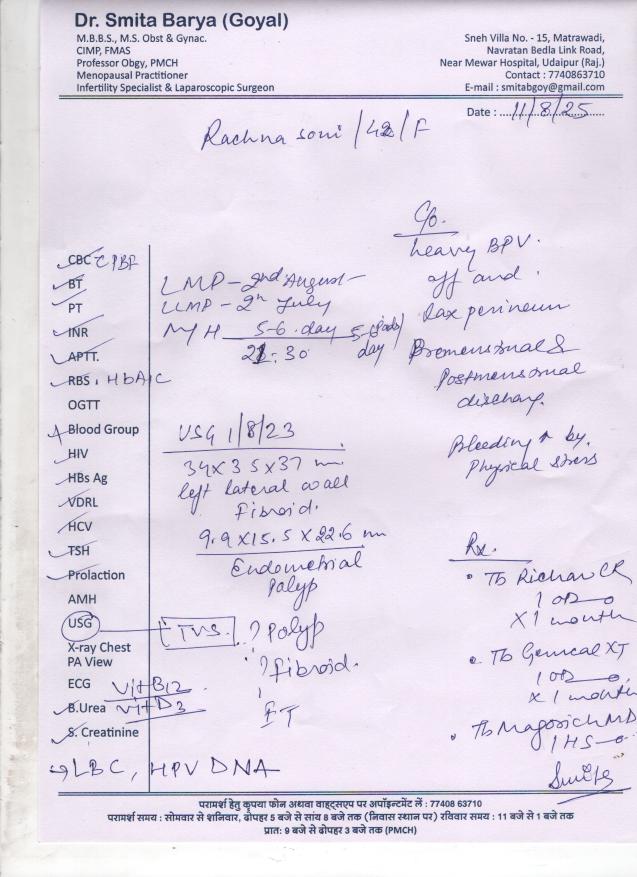 Dr. Smita Barya (Goyal)
M.B.B.S., M.S. Obst & Gynac.
CIMP, FMAS
Professor Obgy, PMCH
Menopausal Practitioner
Infertility Specialist & Laparoscopic Surgeon
Sneh Villa No. - 15, Matrawadi,
Navratan Bedla Link Road,
Near Mewar Hospital, Udaipur (Raj.)
Contact : 7740863710
E-mail : smitabgoy@gmail.com
Date : 11/8/25
Rachna soni / 42 / F
CBC c PBF
BT
PT
INR
APTT.
RBS, HbA1C
OGTT
Blood Group
HIV
HBs Ag
VDRL
HCV
TSH
Prolaction
AMH
USG
X-ray Chest
PA View
ECG Vit B12
B.Urea Vit D3
S. Creatinine
LBC, HPV DNA
LMP - 2nd August -
LLMP - 2th July
M/H 5-6 day 5-6 pads/
day
28-30
USG 1/8/23
34 x 35 x 37 mm
left lateral wall
Fibroid.
9.9 x 15.5 x 22.6 mm
Endometrial
Polyp
TVS. ? Polyp
? Fibroid.
ET
C/o.
heavy BPV.
off and
Lax perineum
Premensional &
Postmensional
discharg.
Bleeding ↑ by
Physical stress
Rx.
• Tb Richar CR
1 OD
x 1 month
• Tb Gemcal XT
1 OD
x 1 month
• Tb Magorich MD
1 HS
Smita
परामर्श हेतु कृपया फोन अथवा वाट्सएप पर अपॉइन्टमेंट लें : 77408 63710
परामर्श समय : सोमवार से शनिवार, दोपहर 5 बजे से सांय 8 बजे तक (निवास स्थान पर) रविवार समय : 11 बजे से 1 बजे तक
प्रात: 9 बजे से दोपहर 3 बजे तक (PMCH)